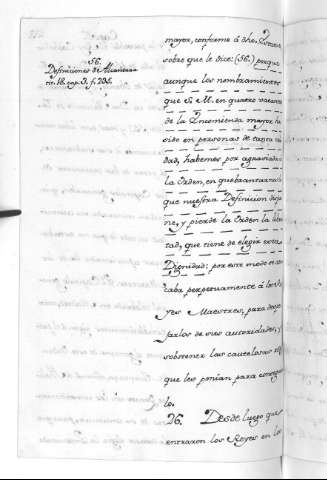 56.
Definiciones de Alcantara
tit. 18. cap. 0. f. 206.
mayor, conforme á dho.
sobre que le dice: (56.) porque
aunque los nombramientos
que S. M. en quatro vacantes
de la Encomienda mayor, ha
sido en personas de tanta cali
dad, habemos por agraviada
la Orden, en quebrantarnos lo
que nuestra Definicion dispo
ne, y pierde la Orden la liber
tad, que tiene de elegir esta
Dignidad: por este modo se
taba perpetuamente á los Re
yes Maestres, para
jarlos de sus autoridades, y
sobstener las cautelosas
que les ponian para
lo.
26. Desde luego que
entraron los Reyes en los